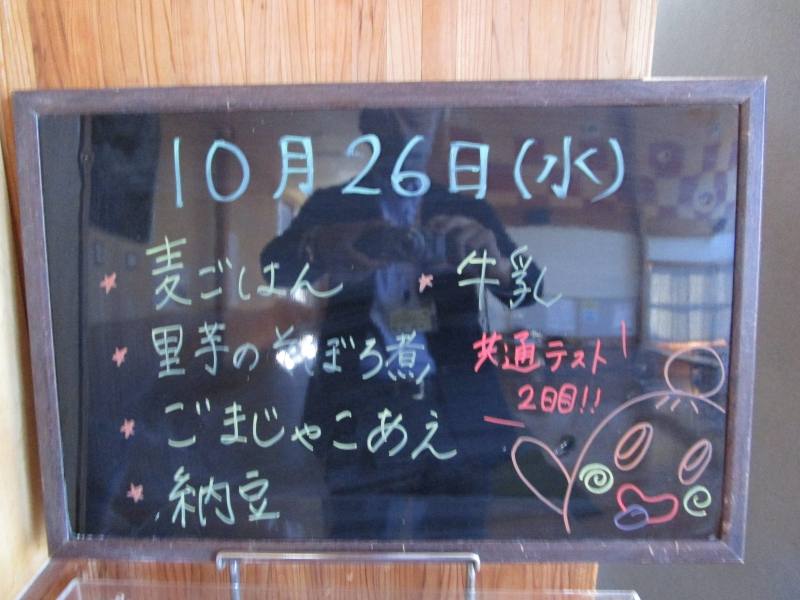 10月26日(水)
麦ごはん
里芋のそぼろ煮
ごまじゃこあえ
納豆
牛乳
共通テスト
2日目!!